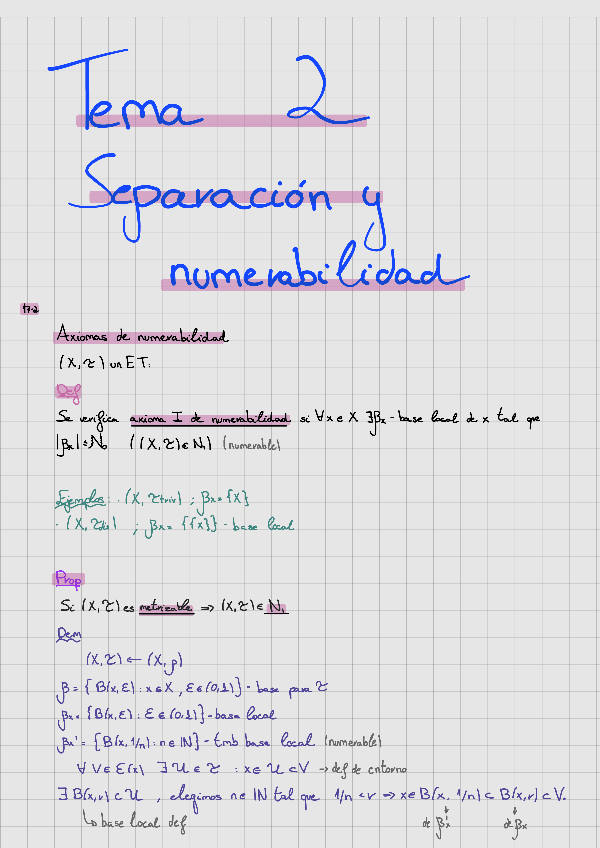 Tema 2
Separación y
numerabilidad
17-2
Axiomas de numerabilidad
(X, τ) un ET.
Def
Se verifica axioma I de numerabilidad si ∀x∈X ∃βx - base local de x tal que
|βx| ≤ ℵ₀ ((X, τ) ∈ N₁) (numerable)
Ejemplos: · (X, τtriv) ; βx = {X}
· (X, τdis) ; βx = {{x}} - base local
Prop
Si (X, τ) es metrizable ⇒ (X, τ) ∈ N₁
Dem
(X, τ) ← (X, ρ)
β = {B(x, ε) : x∈X, ε∈(0,1)} - base para τ
βx = {B(x, ε) : ε∈(0,1)} - base local
βx' = {B(x, 1/n) : n∈ℕ} - tmb base local (numerable)
∀ V∈ε(x) ∃ U∈τ : x∈U⊂V → def de entorno
∃ B(x,r) ⊂ U , elegimos n∈ℕ tal que 1/n < r ⇒ x∈B(x, 1/n) ⊂ B(x,r) ⊂ V.
↳ base local def
de βx'
de βx